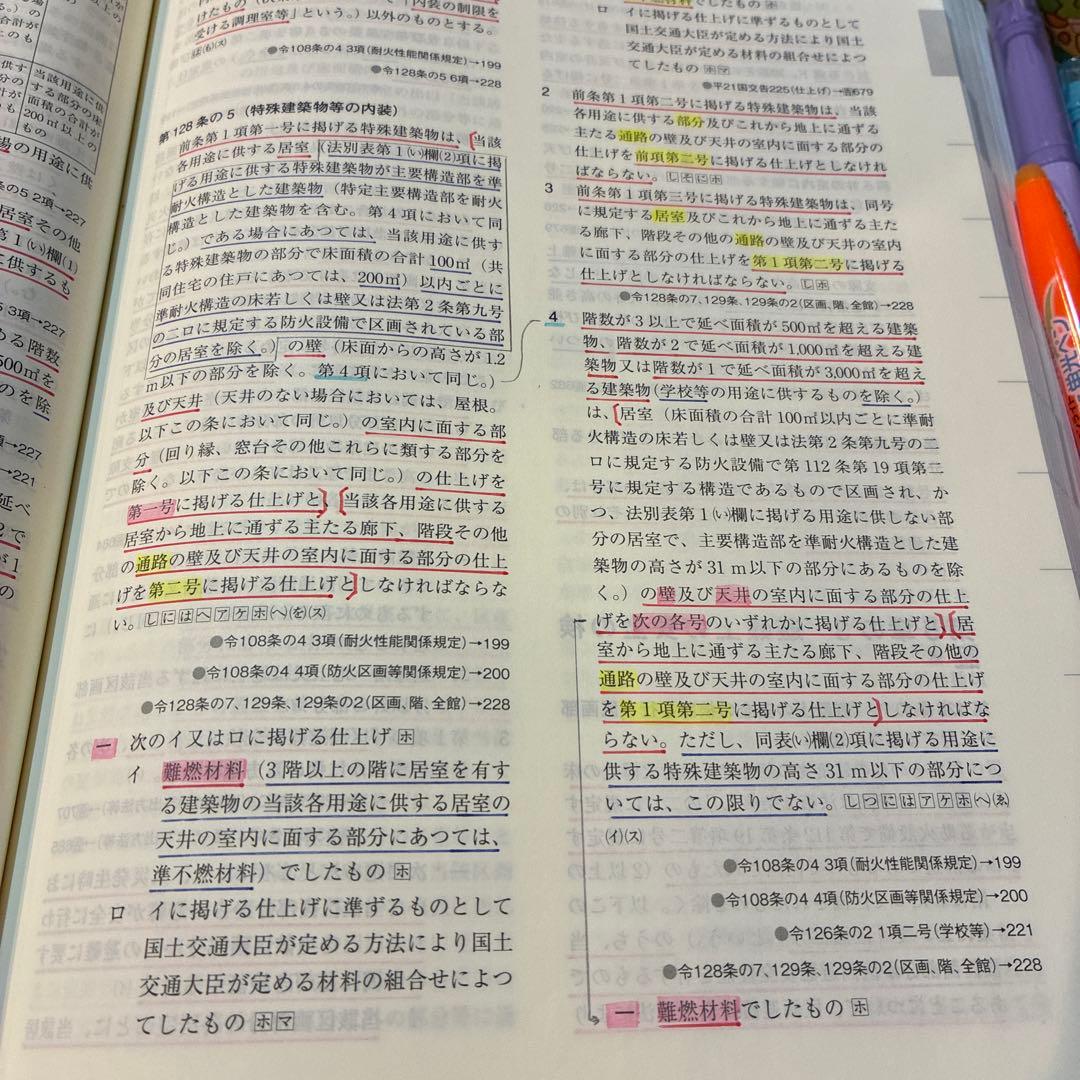 受ける調理室等」という。）以外のものとする。
●令108条の4 3項(耐火性能関係規定)→199
●令128条の5 6項→228
第128条の5（特殊建築物等の内装）
前条第1項第一号に掲げる特殊建築物は、当該
各用途に供する居室（法別表第1(い)欄(2)項に掲
げる用途に供する特殊建築物が主要構造部を準
耐火構造とした建築物（特定主要構造部を耐火
構造とした建築物を含む。第4項において同
じ。）である場合にあつては、当該用途に供す
る特殊建築物の部分で床面積の合計100㎡（共
同住宅の住戸にあつては、200㎡）以内ごとに
準耐火構造の床若しくは壁又は法第2条第九号
の二ロに規定する防火設備で区画されている部
分の居室を除く。）の壁（床面からの高さが1.2
m以下の部分を除く。第4項において同じ。）
及び天井（天井のない場合においては、屋根。
以下この条において同じ。）の室内に面する部
分（回り縁、窓台その他これらに類する部分を
除く。以下この条において同じ。）の仕上げを
第一号に掲げる仕上げと、当該各用途に供する
居室から地上に通ずる主たる廊下、階段その他
の通路の壁及び天井の室内に面する部分の仕上
げを第二号に掲げる仕上げとしなければならな
い。しにはヘアケホへ(を)(ス)
●令108条の4 3項(耐火性能関係規定)→199
●令108条の4 4項(防火区画等関係規定)→200
●令128条の7、129条、129条の2(区画、階、全館)→228
一 次のイ又はロに掲げる仕上げ ホ
イ 難燃材料（3階以上の階に居室を有す
る建築物の当該各用途に供する居室の
天井の室内に面する部分にあつては、
準不燃材料）でしたもの ホ
ロ イに掲げる仕上げに準ずるものとして
国土交通大臣が定める方法により国土
交通大臣が定める材料の組合せによつ
てしたもの ホマ
ロ イに掲げる仕上げに準ずるものとして
国土交通大臣が定める方法により国土
交通大臣が定める材料の組合せによつ
てしたもの ホマ
●平21国交告225(仕上げ)→告679
2 前条第1項第二号に掲げる特殊建築物は、当該
各用途に供する部分及びこれから地上に通ずる
主たる通路の壁及び天井の室内に面する部分の
仕上げを前項第二号に掲げる仕上げとしなけれ
ばならない。しそにホ
3 前条第1項第三号に掲げる特殊建築物は、同号
に規定する居室及びこれから地上に通ずる主た
る廊下、階段その他の通路の壁及び天井の室内
に面する部分の仕上げを第1項第二号に掲げる
仕上げとしなければならない。しホ
●令128条の7、129条、129条の2(区画、階、全館)→228
4 階数が3以上で延べ面積が500㎡を超える建築
物、階数が2で延べ面積が1,000㎡を超える建
築物又は階数が1で延べ面積が3,000㎡を超え
る建築物（学校等の用途に供するものを除く。）
は、居室（床面積の合計100㎡以内ごとに準耐
火構造の床若しくは壁又は法第2条第九号の二
ロに規定する防火設備で第112条第19項第二
号に規定する構造であるもので区画され、か
つ、法別表第1(い)欄に掲げる用途に供しない部
分の居室で、主要構造部を準耐火構造とした建
築物の高さが31m以下の部分にあるものを除
く。）の壁及び天井の室内に面する部分の仕上
げを次の各号のいずれかに掲げる仕上げと、居
室から地上に通ずる主たる廊下、階段その他の
通路の壁及び天井の室内に面する部分の仕上げ
を第1項第二号に掲げる仕上げとしなければな
らない。ただし、同表(い)欄(2)項に掲げる用途に
供する特殊建築物の高さ31m以下の部分につ
いては、この限りでない。しつにはアケホへ(ゑ)
(イ)(ス)
●令108条の4 3項(耐火性能関係規定)→199
●令108条の4 4項(防火区画等関係規定)→200
●令126条の2 1項二号(学校等)→221
●令128条の7、129条、129条の2(区画、階、全館)→228
一 難燃材料でしたもの ホ